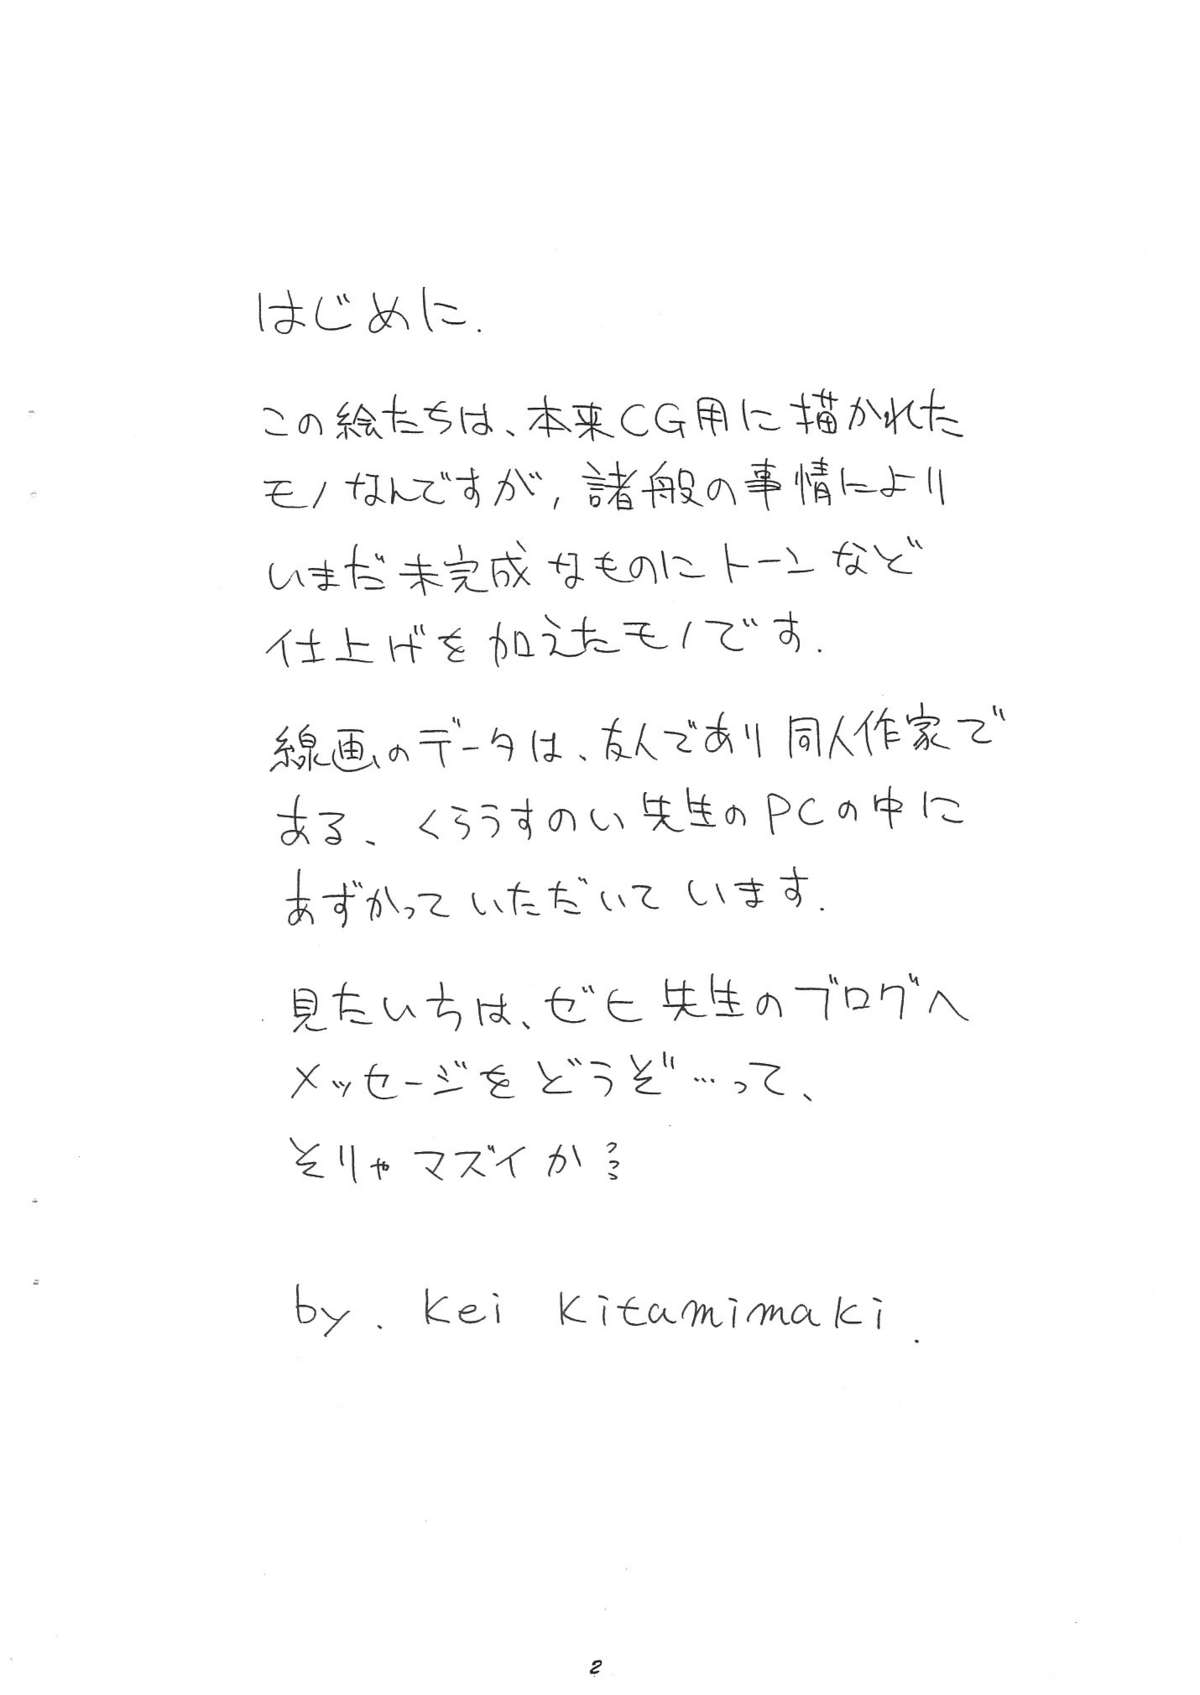 はじめに.
この絵たちは、本来CG用に描かれた
モノなんですが、諸般の事情により
いまだ未完成なものにトーンなど
仕上げを加えたモノです.
線画のデータは、友人であり同人作家で
ある、くらうすのい先生のPCの中に
あずかっていただいています.
見たいちは、ゼヒ先生のブログへ
メッセージをどうぞ…って、
そりゃマズイか
by. Kei Kitamimaki.
2